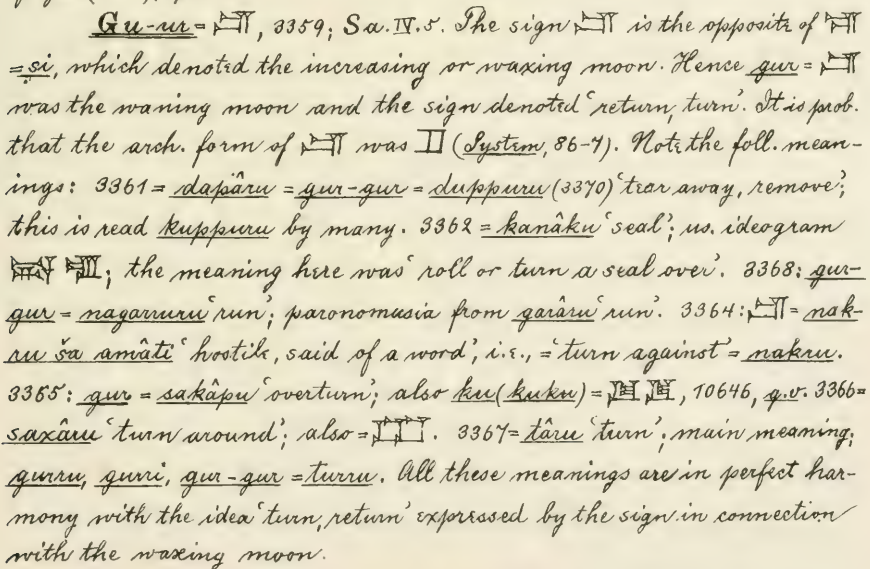 Gu-ur = 𒄥, 3359; Sa. IV. 5. The sign 𒄥 is the opposite of 𒋛
= si, which denoted the increasing or waxing moon. Hence gur = 𒄥
was the waning moon and the sign denoted ‘return, turn’. It is prob.
that the arch. form of 𒄥 was (System, 86-7). Note the foll. mean-
ings: 3361 = dapâru = gur-gur = duppuru (3370) ‘tear away, remove’;
this is read kuppuru by many. 3362 = kanâku ‘seal’; us. ideogram
; the meaning here was ‘roll or turn a seal over’. 3368: gur-
gur = nagarruru ‘run’; paronomasia from garâru ‘run’. 3364: 𒄥 = nak-
ru ša amâti ‘hostile, said of a word’, i.e., = ‘turn against’ = nakru.
3365: gur = sakâpu ‘overturn’; also ku (kuku) = , 10646, q.v. 3366 =
saxâru ‘turn around’; also = . 3367 = târu ‘turn’; main meaning;
gurru, gurri, gur-gur = turru. All these meanings are in perfect har-
mony with the idea ‘turn, return’ expressed by the sign in connection
with the waxing moon.